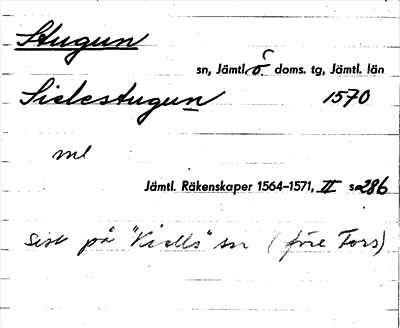 Stugun
sn, Jämtl. ö. doms. tg, Jämtl. län
Sidestugun 1570
ml
Jämtl. Räkenskaper 1564–1571, II s 286
sist på "Kiells" sn (före Fors)